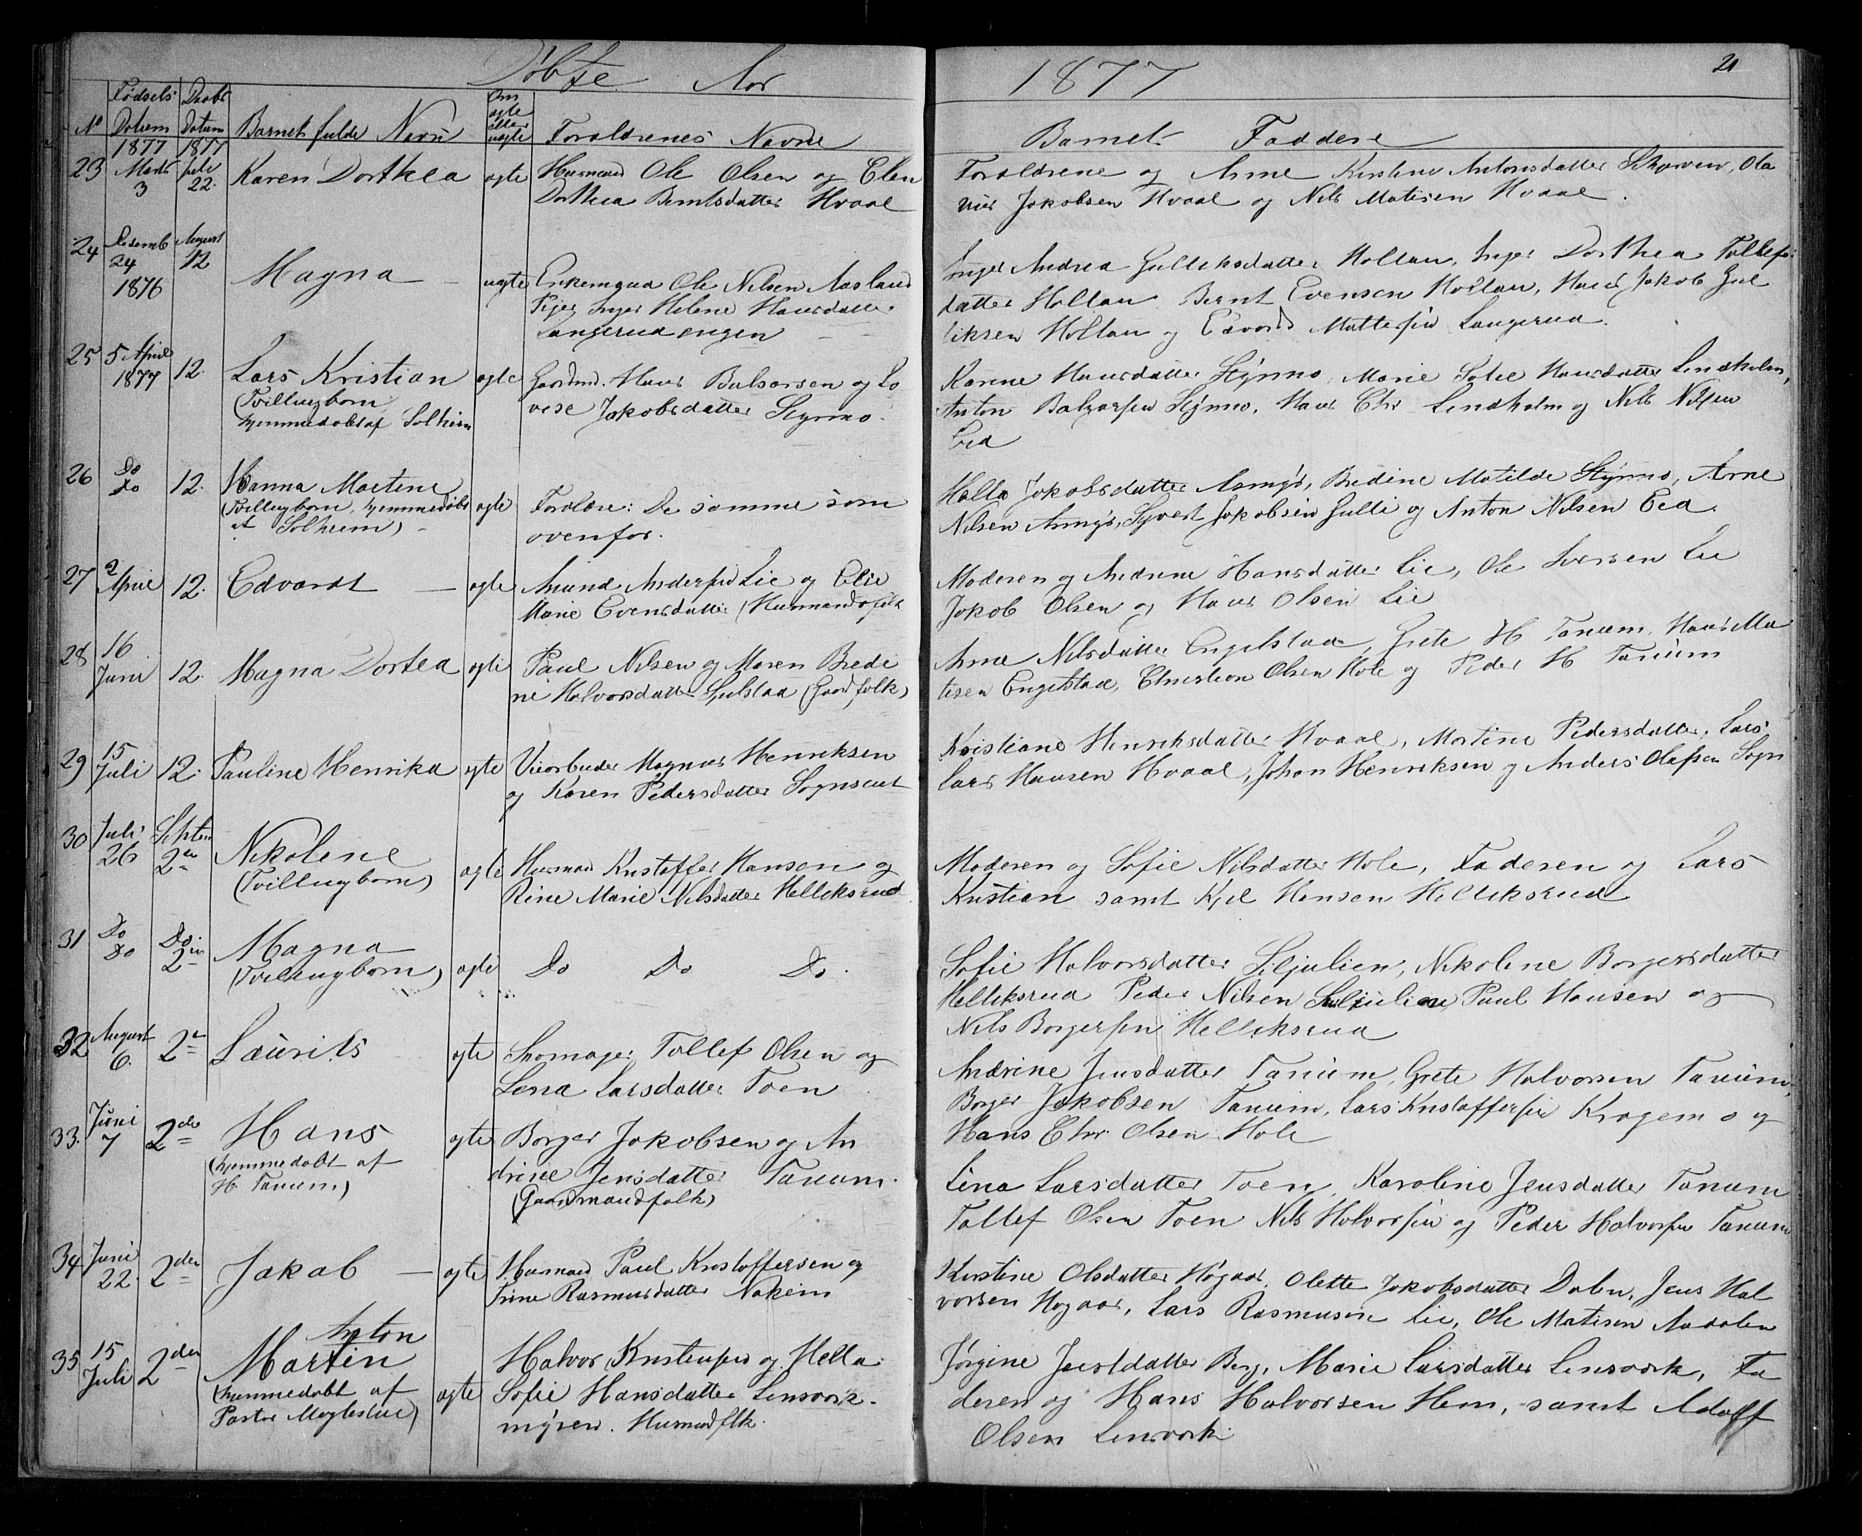 Døbte Aar 1877
21
No
Fødsels Datum 1877
Daabs Datum 1877
Barnets fulde Navn
Om ægte eller uægte
Forældrenes Navne
Barnets Faddere
23 Marts 3 Juli 22. Karen Dorthea ægte Husmand Ole Olsen og Elen
Dorthea Berntsdatter Hvaal
Forældrene og Anne Kirstine Antonsdatter Skarvin, Ola
us Jakobsen Hvaal og Nils Matisen Hvaal.
24 Desemb 24 1876 August 12 Magna uægte Enkemand Ole Nilsen Aasland
Pige Inger Helene Hansdatter
Langerudengen
Inger Andrea Gulliksdatter Holtan, Inger Dorthea Tollefs
datter Holtan Bernt Evensen Holtan, Hans Jakob Gul
liksen Holtan og Edvard Mattesen Langerud.
25 5 April 1877 12. Lars Kristian ægte Gaardmd. Hans Balsersen og Lo
(Tvillingborn
hjemmedøbt af Solheim
vise Jakobsdatter Stýrmo.
Karine Hansdatter Stýrmo, Marie Sofie Hansdatter Lindholm,
Anton Balzersen Stýrmo, Hans Chr Lindholm og Nils Nilsen
Eid
26 Do Do 12. Hanna Martine ægte Forældre: De samme som
(Tvillingborn, hjemmedøbt
af Solheim)
ovenfor.
Helle Jakobsdatter Asmyr, Bredine Matilde Stýrmo, Arne
Nilsen Asmyr, Syvert Jakobsen Gulli og Anton Nilsen Eid.
27 2 April 12. Edvardt ægte Amund Andersen Lie og Elie
Marie Evensdatter (Husmandsfolk
Moderen og Andrine Hansdatter Lie, Ole Iversen Lie
Jakob Olsen og Hans Olsen Lie
28 16 Juni 12. Magna Dortea ægte Paul Nilsen og Maren Bredi
ne Halvorsdatter (Gaardfolk)
Anne Nilsdatter Engelstad, Grete H Tanum, Hans Ma
tisen Engelstad, Christian Olsen Hole og Peder H Tanum
29 15 Juli 12. Pauline Henrika ægte Magnus Henriksen
og Karen Pedersdatter
Kristiane Henriksdatter Hvaal, Martine Pedersdatter, Lars
Lars Hansen Hvaal, Johan Henriksen og Anders Olafsen Sogn
30 Juli 26 Septem 2en Nikolene ægte Husmand Kristoffer Hansen og
(Tvillingborn)
Rine Marie Nilsdatter Helliksrud
Moderen og Sofie Nilsdatter Hole, Faderen og Lars
Kristian samt Kjel Hansen Helliksrud
31 Do Do Do 2en Magna ægte Do Do Do.
(Tvillingborn)
Sofie Halvorsdatter Siljulien, Nikolene Borgersdatter
Helliksrud Peder Nilsen Siljulien, Paul Hansen og
Nils Borgersen Helliksrud
32 August 6. 2en Laurits ægte Skomager Tollef Olsen og
Lena Larsdatter Toen
Andrine Jensdatter Tanum, Grete Halvorsen Tanum,
Borger Jakobsen Tanum, Lars Kristoffersen Kragemo og
Hans Chr Olsen Hole
33. Juni 7 2den Hans ægte Borger Jakobsen og An
(hjemmedøbt af
H Tanum)
drine Jensdatter Tanum.
(Gaardmandfolk)
Lena Larsdatter Toen, Karoline Jensdatter Tanum
Tollef Olsen Toen Nils Halvorsen og Peder Halvorsen Tanum
34 Juni 22. 2den Jakob ægte Husmand Paul Kristoffersen og
Trine Rasmusdatter Nakim
Kirstine Olsdatter Høgaas, Olette Jakobsdatter Dalen, Jens Hal
vorsen Høgaas, Lars Rasmusen Lie, Ole Matisen Aadalen
35 15 Juli 2den Martin Anton ægte Halvor Kristensen og Helle
(hjemmedøbt af
Pastor Moglestue)
Sofie Hansdatter Lensvark-
mýren. Husmandflk.
Jørgine Jensdatter Berg, Marie Larsdatter Lensvark, Fa
deren og Hans Halvorsen Hem, samt Adolf
Olsen Lensvark